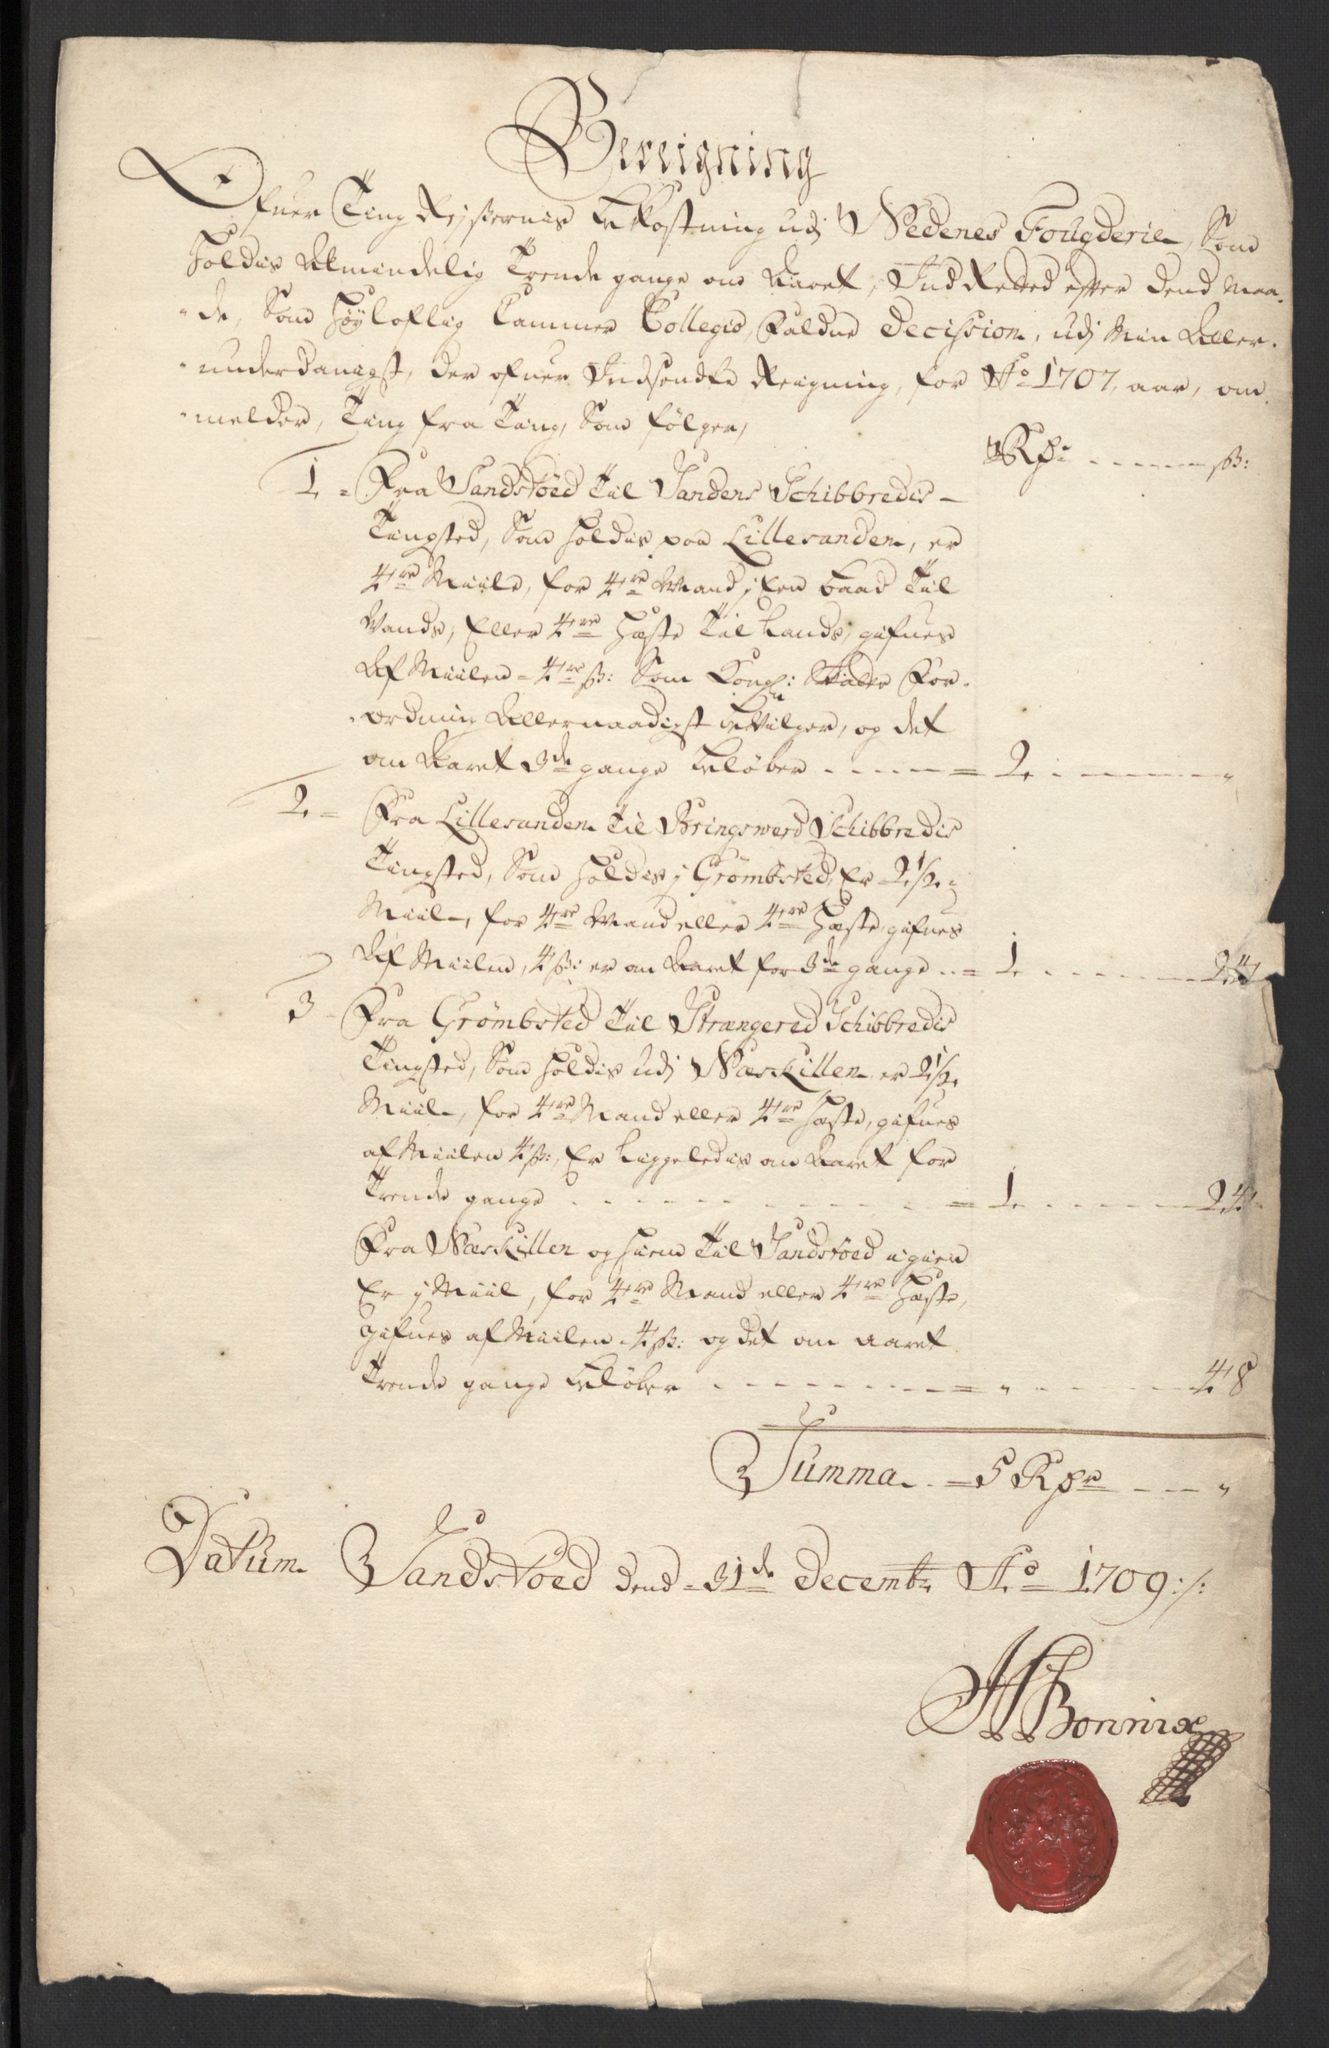 Bereigning
Ofuer Ting Reisernis bekostning udj Nedenes Fougderie, Som
holdis Almindelig Trende gange om Aaret, Indretted efter dend Maa-
de, Som höyloflig Cammer Collegio, faldne Decision, udj Min Aller-
underdanigst, der ofuer Indsendte Reigning, for Ao 1707 aar, om-
melder, Ting fra Ting, Som følger,
Rdr: ß:
1 - Fra Sandstöed Til Sandens Schibbredis -
Tingsted, Som holdis paa Lillesanden, er
4re Miile, for 4re Mand j Een baad Til
Vands, Eller 4re Hæste Til Lands, gifues
Af Miilen - 4re ß: Som Kongl: For-
ordning Allernaadigst beVilger, og det
om Aaret 3de gange beløber = 2
2 - Fra Lillesanden Til Bringswerd Schibbredis
Tingsted, Som holdis j Grömbsted, Er 2 1/2
Miil, for 4re Mand eller 4re Hæste, gifues
Af Miilen, 4 ß: er om Aaret for 3de gange = 1 24
3 - Fra Grömbsted Til Strangered Schibbredis
Tingsted, Som holdis udj Næskillen er 2 1/2
Miil, for 4re Mand eller 4re Hæste, gifues
af Miilen 4 ß:, Er ligeledis om Aaret for
Trende gange = 1 24
Fra Næskillen og hiem Til Sandstöed igien
Er j Miil, for 4re Mand eller 4re Hæste,
Gifues af Miilen 4 ß: og det om aaret
Trende gange beløber = " 48
Summa - 5 Rdr "
Datum Sandstöed dend - 31de Decembr Ao 1709 :/:
Bonnix